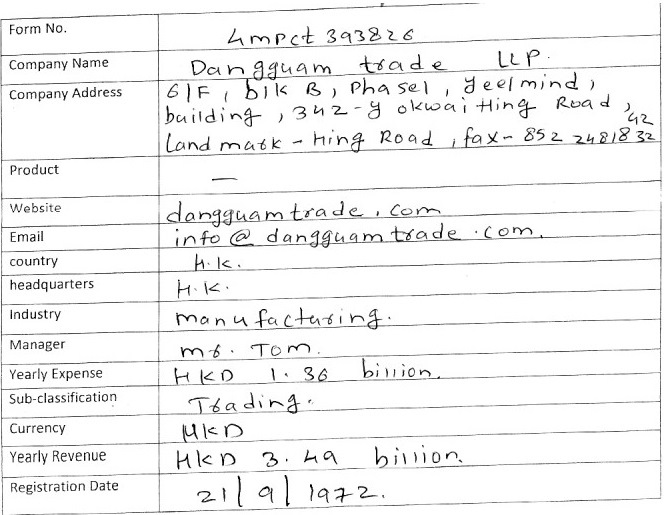 Form No. 4mpct 393826
Company Name Dangguam trade LLP.
Company Address 6/F, blk B, Phase1, Yeelmind,
building, 342-y okwai Hing Road,
Land mark - Hing Road, fax- 852 24818 32 42
Product —
Website dangguamtrade.com
Email info@dangguamtrade.com.
country H.K.
headquarters H.K.
Industry manufacturing.
Manager mr. Tom.
Yearly Expense HKD 1.36 billion.
Sub-classification Trading.
Currency HKD
Yearly Revenue HKD 3.49 billion.
Registration Date 21/9/1972.